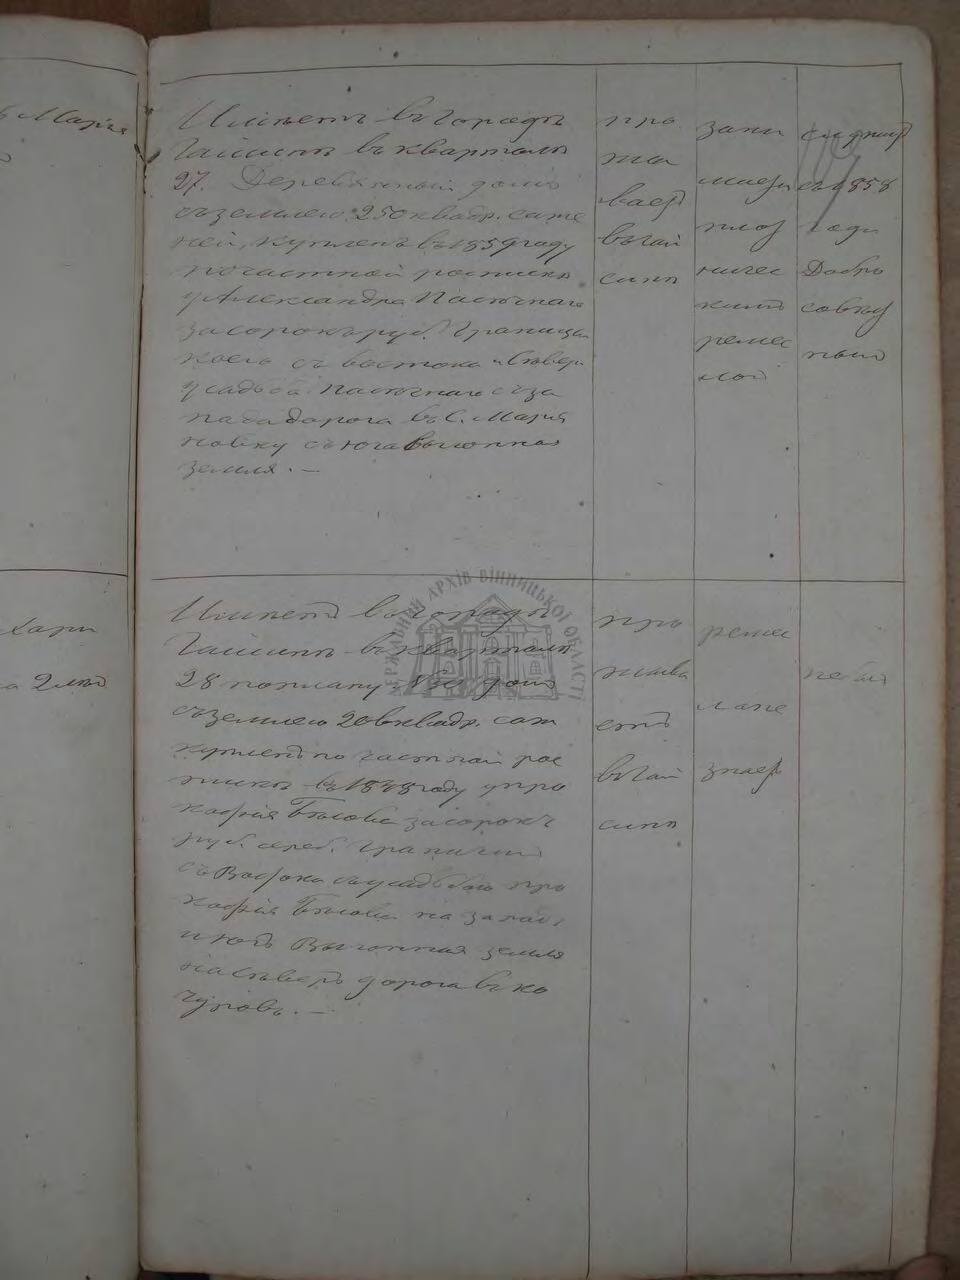 ь Марія
Имѣетъ въ городѣ
Гайсинѣ въ кварталѣ
27. Деревянный домъ
съ землею 250 квадр. саже
ней, купленъ въ 1859 году
по частной роспискѣ
у Александра Пасѣчнаго
за сорокъ руб. Граница
коего съ востока и Сѣвера
усадьба Пасѣчнаго съ за
пада дорога въ С. Марья
новку съ юга выгонная
земля. —
про
жи
ваетъ
въ Гай
синѣ
зани
мается
ческимъ
ремес
лом
въ 1858
году
Добро
совѣс
нымъ
Хари
на 2 лѣт
Имѣетъ въ городѣ
Гайсинѣ въ кварталѣ
28 по плану домъ
съ землею 200 квадр. саж
купленъ по частной рос
пискѣ въ 1848 году у про
кофія Бѣлова за сорокъ
руб. сереб. Граничитъ
съ Востока съ усадьбою про
кофія Бѣлова на запад
и югъ Выгонная земля
на сѣверъ дорога въ ко
чуровъ. —
про
жива
етъ
въ Гай
синѣ
ремес
ла не
знаетъ
не был
ДЕРЖАВНИЙ АРХІВ ВІННИЦЬКОЇ ОБЛАСТІ